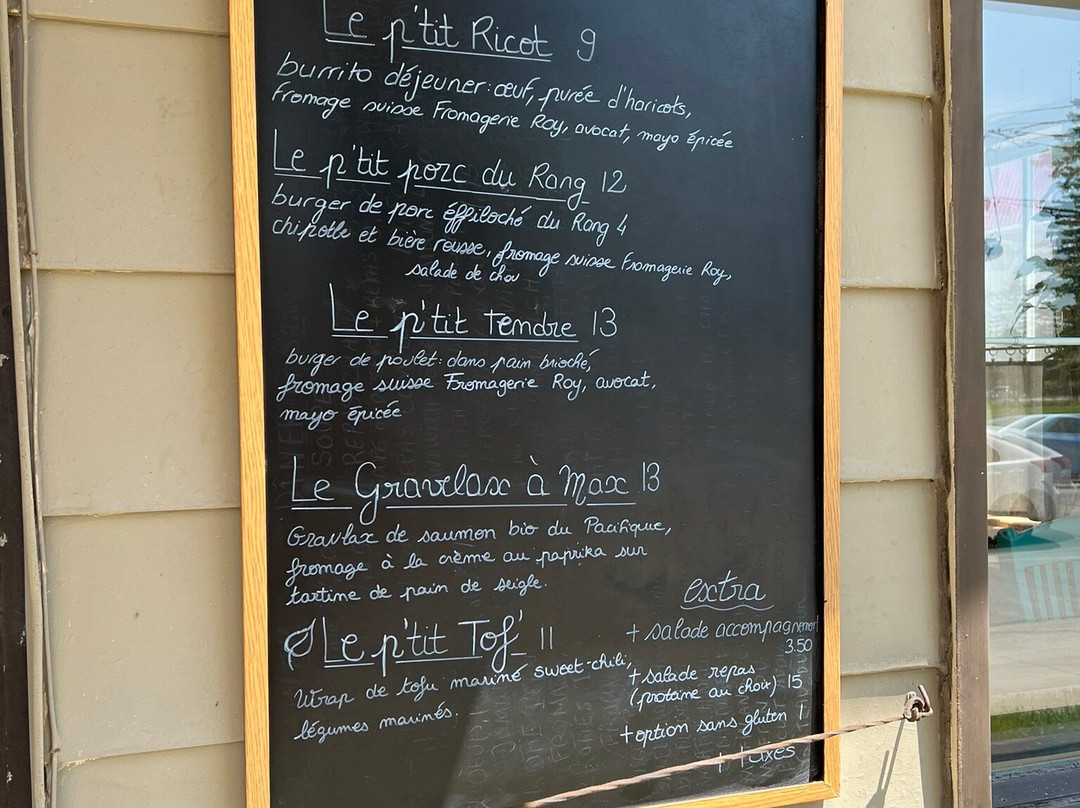 Le p'tit Ricot 9
burrito déjeuner: œuf, purée d'haricots,
fromage suisse Fromagerie Roy, avocat, mayo épicée
Le p'tit porc du Rang 12
burger de porc éffiloché du Rang 4
chipotle et bière rousse, fromage suisse Fromagerie Roy,
salade de chou
Le p'tit Tendre 13
burger de poulet: dans pain brioché,
fromage suisse Fromagerie Roy, avocat,
mayo épicée
Le Gravelax à Max 13
Gravlax de saumon bio du Pacifique,
fromage à la crème au paprika sur
tartine de pain de seigle.
Le p'tit Tof' 11
Wrap de tofu mariné sweet-chili,
légumes marinés.
extra
+ salade accompagnement
3.50
+ salade repas
(protéine au choix) 15
+ option sans gluten 1
+ taxes